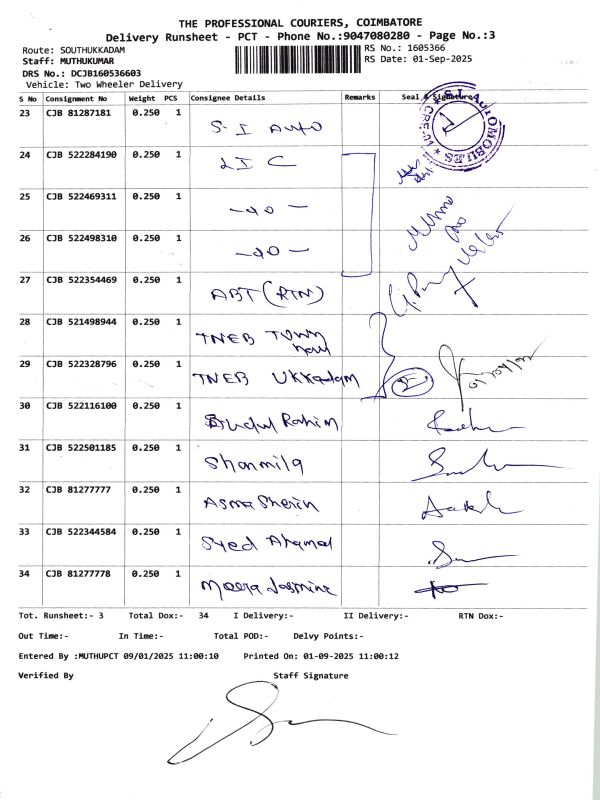 THE PROFESSIONAL COURIERS, COIMBATORE
Delivery Runsheet - PCT - Phone No.:9047080280 - Page No.:3
Route: SOUTHUKKADAM
RS No.: 1605366
Staff: MUTHUKUMAR
RS Date: 01-Sep-2025
DRS No.: DCJB160536603
Vehicle: Two Wheeler Delivery
S No Consignment No Weight PCS Consignee Details Remarks Seal & Signature
23 CJB 81287181 0.250 1 S. I Auto
24 CJB 522284190 0.250 1 LIC
25 CJB 522469311 0.250 1 -do-
26 CJB 522498310 0.250 1 -do-
27 CJB 522354469 0.250 1 ABT (RTN)
28 CJB 521498944 0.250 1 TNEB Town
29 CJB 522328796 0.250 1 TNEB Ukkadam
30 CJB 522116100 0.250 1 Rahim
31 CJB 522501185 0.250 1 Sharmila
32 CJB 81277777 0.250 1 Asma Sherin
33 CJB 522344584 0.250 1 Syed Ahamed
34 CJB 81277778 0.250 1 Meera Jasmine
S.I. AUTOMOBILES
Tot. Runsheet:- 3 Total Dox:- 34 I Delivery:- II Delivery:- RTN Dox:-
Out Time:- In Time:- Total POD:- Delvy Points:-
Entered By :MUTHUPCT 09/01/2025 11:00:10 Printed On: 01-09-2025 11:00:12
Verified By Staff Signature